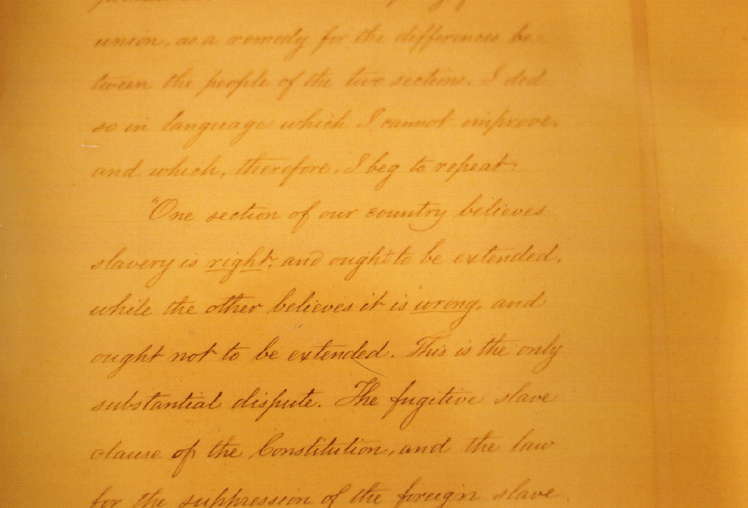 union, as a remedy for the differences be-
tween the people of the two sections. I did
so in language which I cannot improve,
and which, therefore, I beg to repeat:
"One section of our country believes
slavery is right, and ought to be extended,
while the other believes it is wrong, and
ought not to be extended. This is the only
substantial dispute. The fugitive slave
clause of the Constitution, and the law
for the suppression of the foreign slave